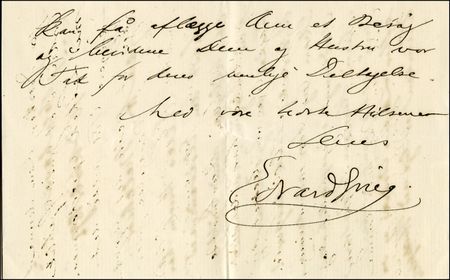 kan få aflægge Dem et Besøg
og bevidne Dem og Hustru vor
Tak for deres venlige Deltagelse.
Med vore bedste Hilsener
Deres
Edvard Grieg.